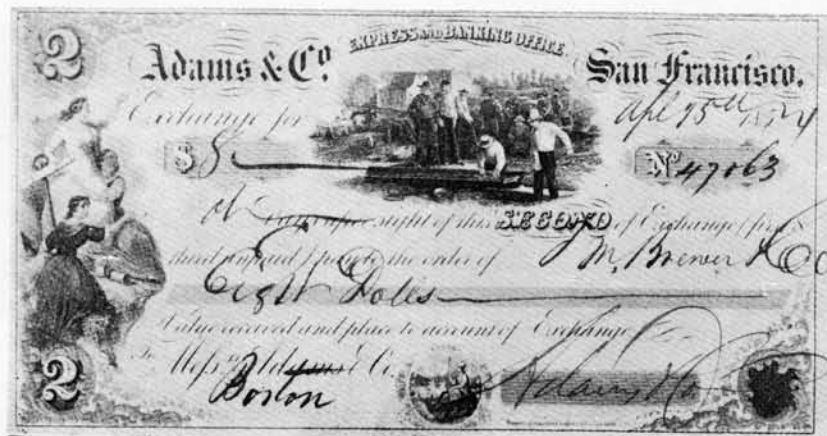 2
EXPRESS AND BANKING OFFICE
Adams & Co. San Francisco.
Exchange for Apl 15th 1854
$ 8 No 47063
At sight of this SECOND of Exchange (first &
third unpaid) pay to the order of J M. Brewer & Co
Eight Dolls
Value received and place to account of Exchange
To Messrs & Co.
Boston
2
Adams & Co